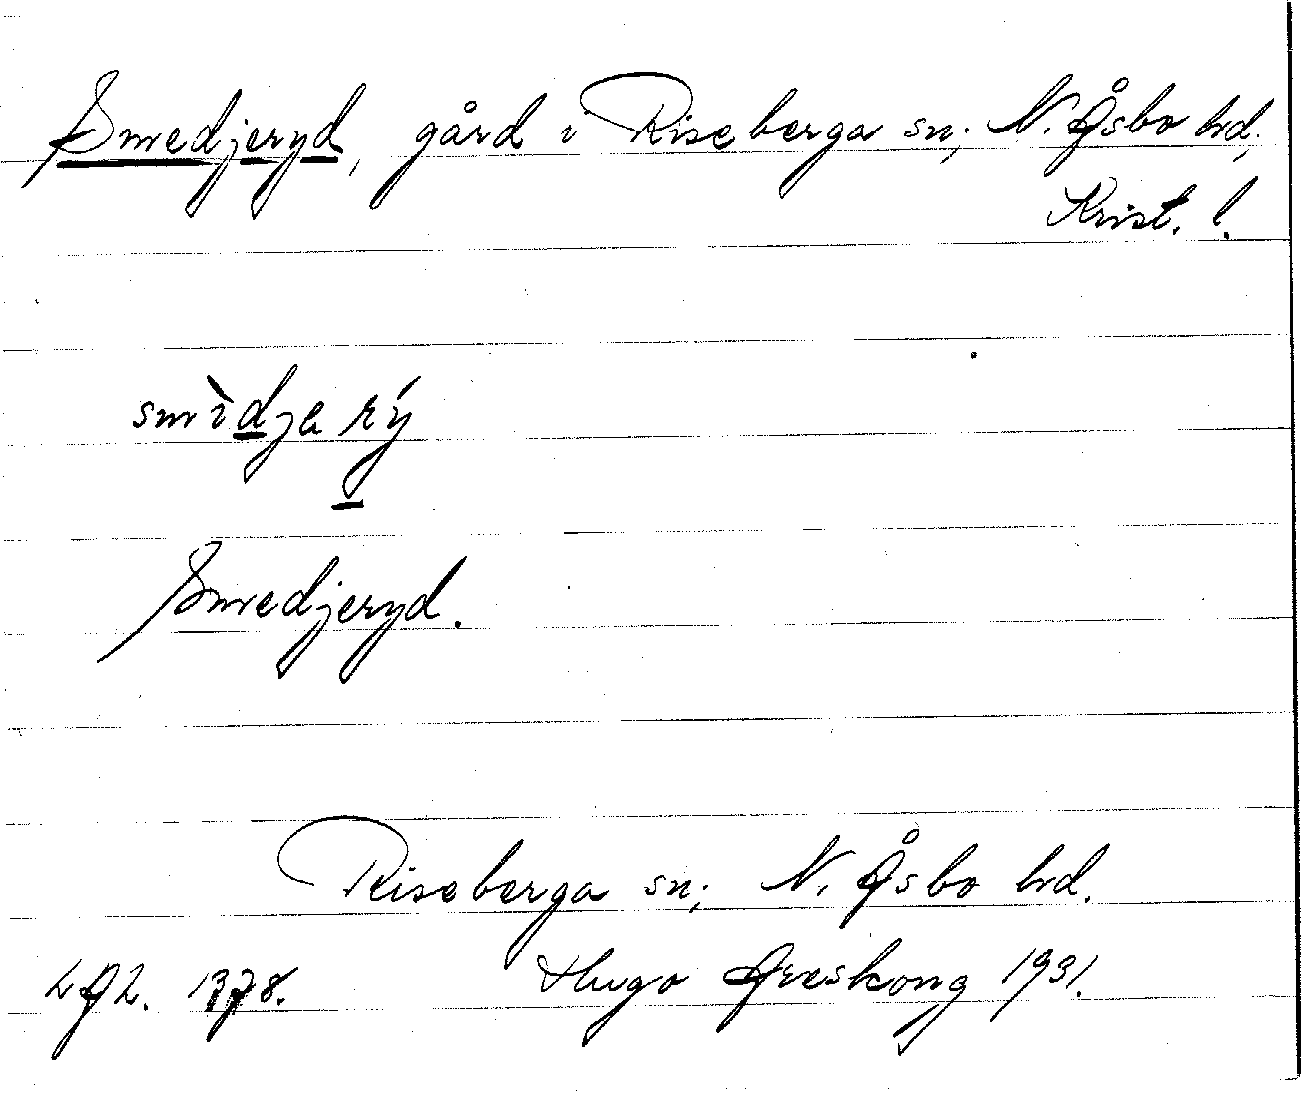 Smedjeryd, gård i Riseberga sn; N. Åsbo hd,
Krist. l.
smìdja rý
Smedjeryd.
Riseberga sn; N. Åsbo hd.
LAL. 1378. Hugo Areskoug 1931.